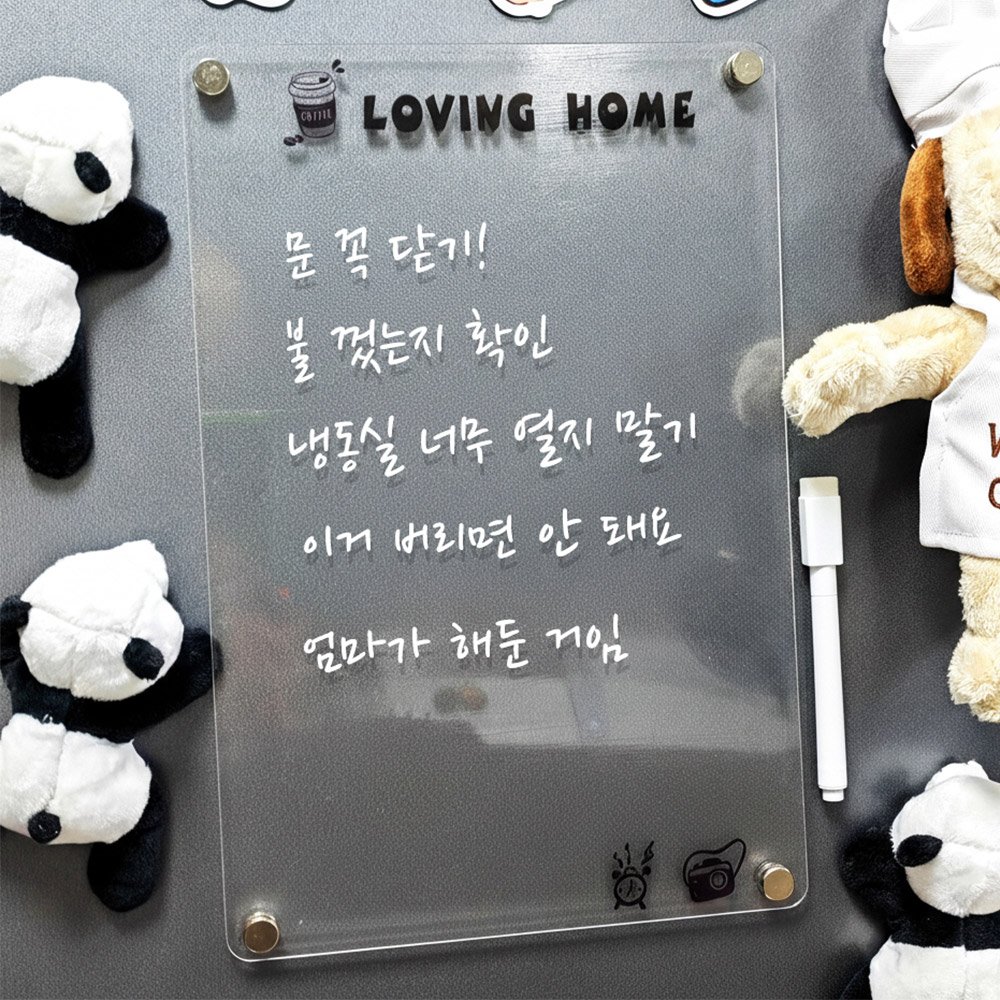 COFFEE
LOVING HOME
문 꼭 닫기!
불 껐는지 확인
냉동실 너무 열지 말기
이거 버리면 안 돼요
엄마가 해둔 거임